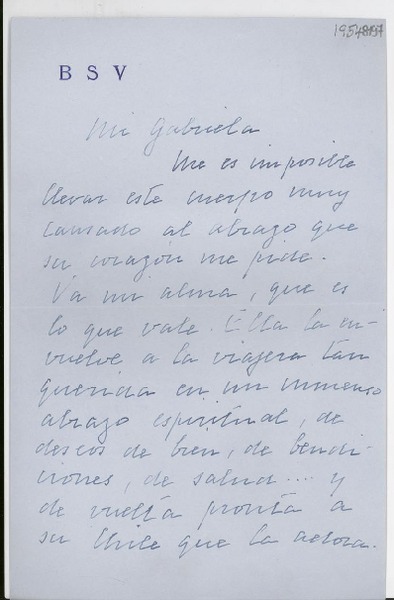 B S V
Mi Gabriela
Me es imposible
llevar este cuerpo muy
cansado al abrazo que
su corazón me pide.
Va mi alma, que es
lo que vale. Ella la en-
vuelve a la viajera tan
querida en un inmenso
abrazo espiritual, de
deseos de bien, de bendi-
ciones, de salud.... y
de vuelta pronta a
su Chile que la adora.